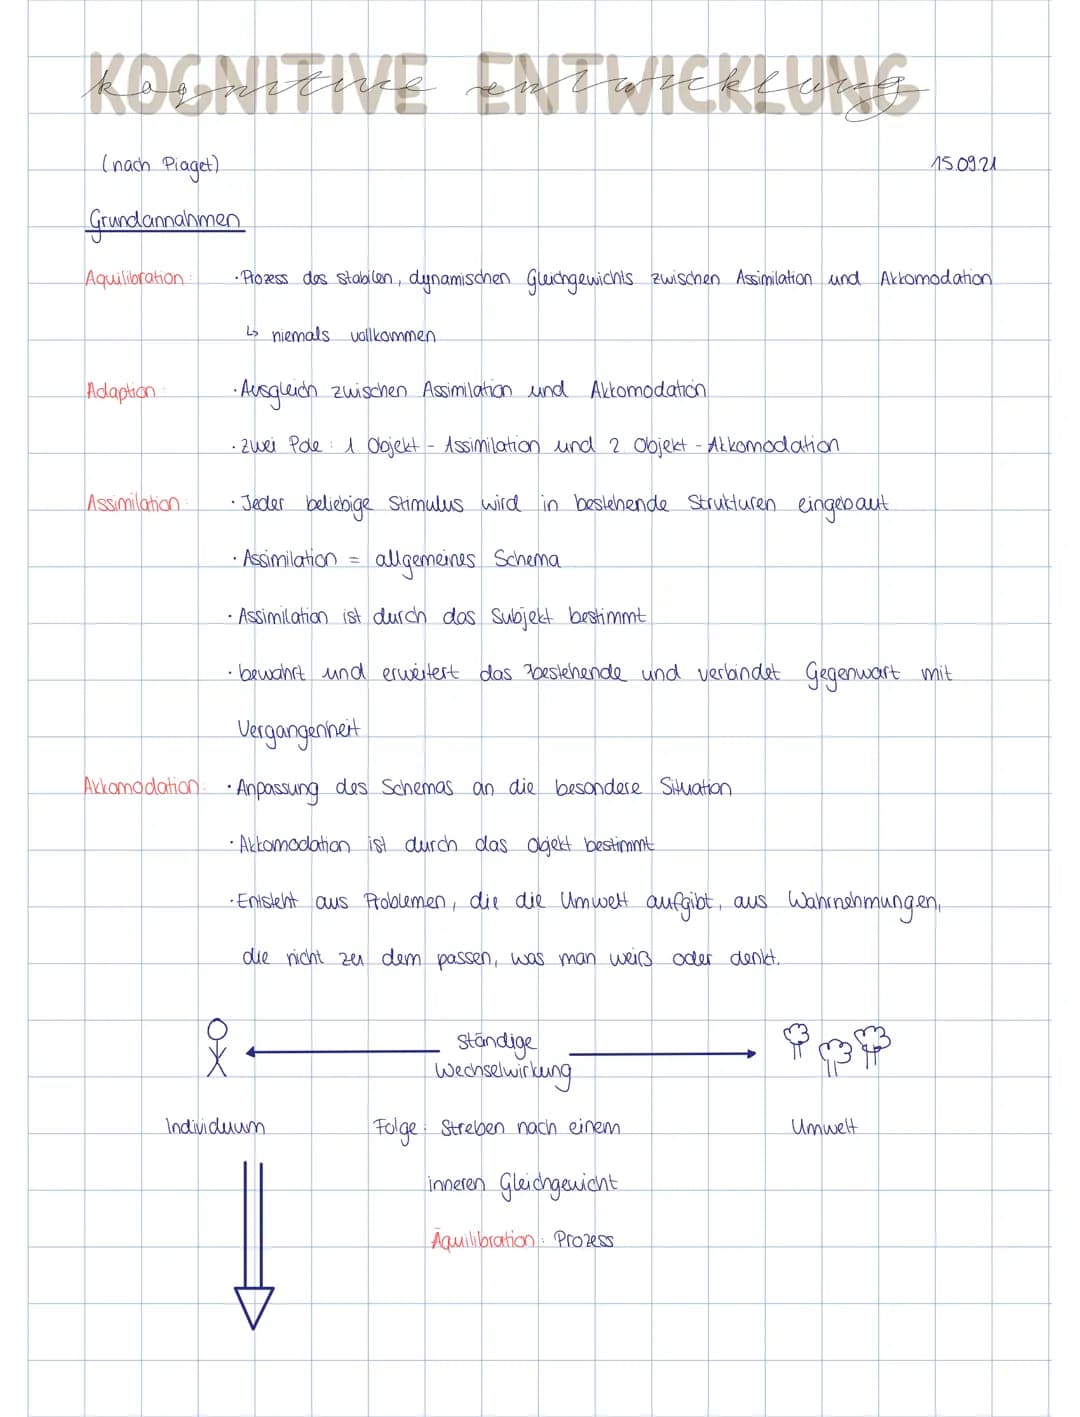 KOGNITIVE ENTWICKLUNG
kognitive entwicklung
(nach Piaget) 15.09.21
Grundannahmen
Äquilibration: · Prozess des stabilen, dynamischen Gleichgewichts zwischen Assimilation und Akkomodation
↳ niemals vollkommen
Adaption: · Ausgleich zwischen Assimilation und Akkomodation
· zwei Pole: 1 Objekt - Assimilation und 2 Objekt - Akkomodation
Assimilation: · Jeder beliebige Stimulus wird in bestehende Strukturen eingebaut
· Assimilation = allgemeines Schema
· Assimilation ist durch das Subjekt bestimmt
· bewahrt und erweitert das bestehende und verbindet Gegenwart mit
Vergangenheit
Akkomodation: · Anpassung des Schemas an die besondere Situation
· Akkomodation ist durch das Ojekt bestimmt
· Entsteht aus Problemen, die die Umwelt aufgibt, aus Wahrnehmungen,
die nicht zu dem passen, was man weiß oder denkt.
Ständige
Wechselwirkung
Individuum Folge: Streben nach einem Umwelt
inneren Gleichgewicht
Äquilibration: Prozess